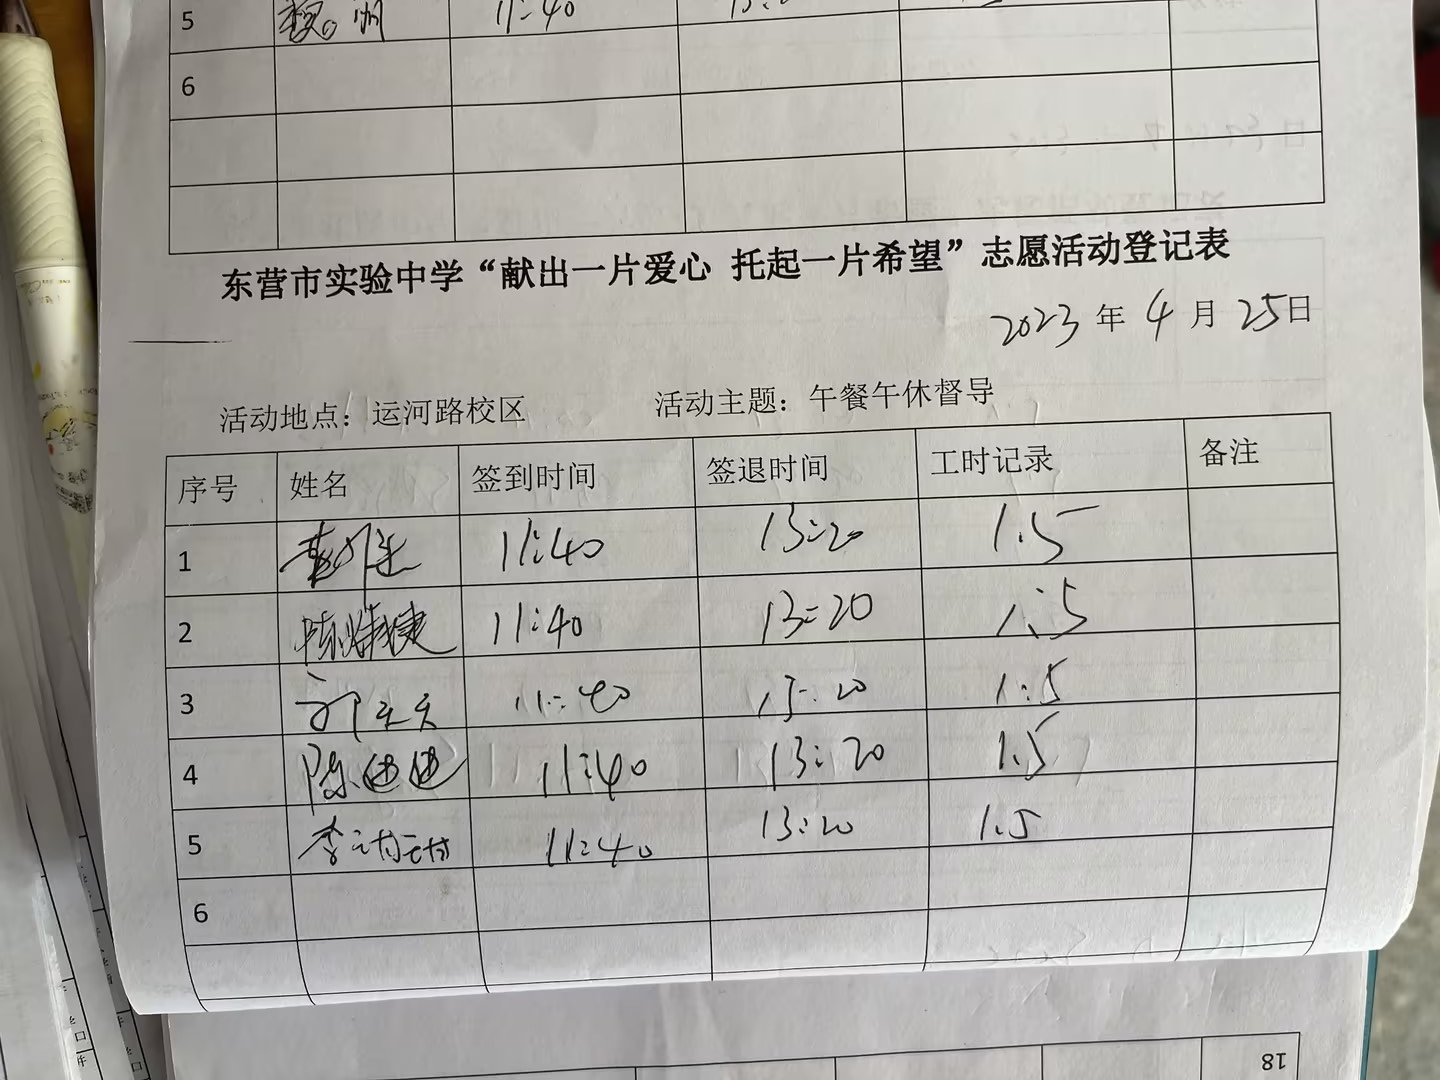 5 11:40
6
东营市实验中学“献出一片爱心 托起一片希望”志愿活动登记表
2023 年 4 月 25日
活动地点：运河路校区 活动主题：午餐午休督导
序号 姓名 签到时间 签退时间 工时记录 备注
1 11:40 13:20 1.5
2 11:40 13:20 1.5
3 11:40 13:20 1.5
4 陈迪迪 11:40 13:20 1.5
5 11:40 13:20 1.5
6
18